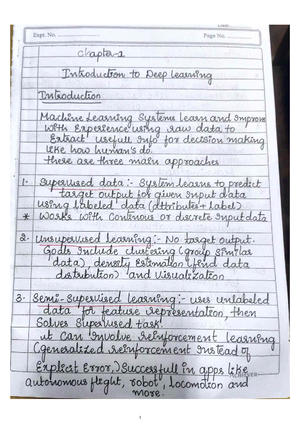 Expt. No.
Page No.
Chapter-1
Introduction to Deep Learning
Introduction
Machine Learning Systems learn and Improve
with Experience using raw data to
Extract usefull Info for decision making
like how human's do.
these are three main approaches
1. Supervised data :- System learns to predict
target output for given Input data
using labeled data (attributes + label)
* Works with Contenous or discrete Input data
2. Unsupervised learning :- No target output.
Goals Include clustering (group similar
data), density Estimation (find data
distribution) and Visualization
3. Semi-Supervised learning :- uses unlabeled
data for feature representation, then
Solves Supervised task
it Can Involve reinforcement learning
(generalized reinforcement Instead of
Explicit Error,) Successfull in apps like
autonomous flight, robot, locomotion and
more.
1